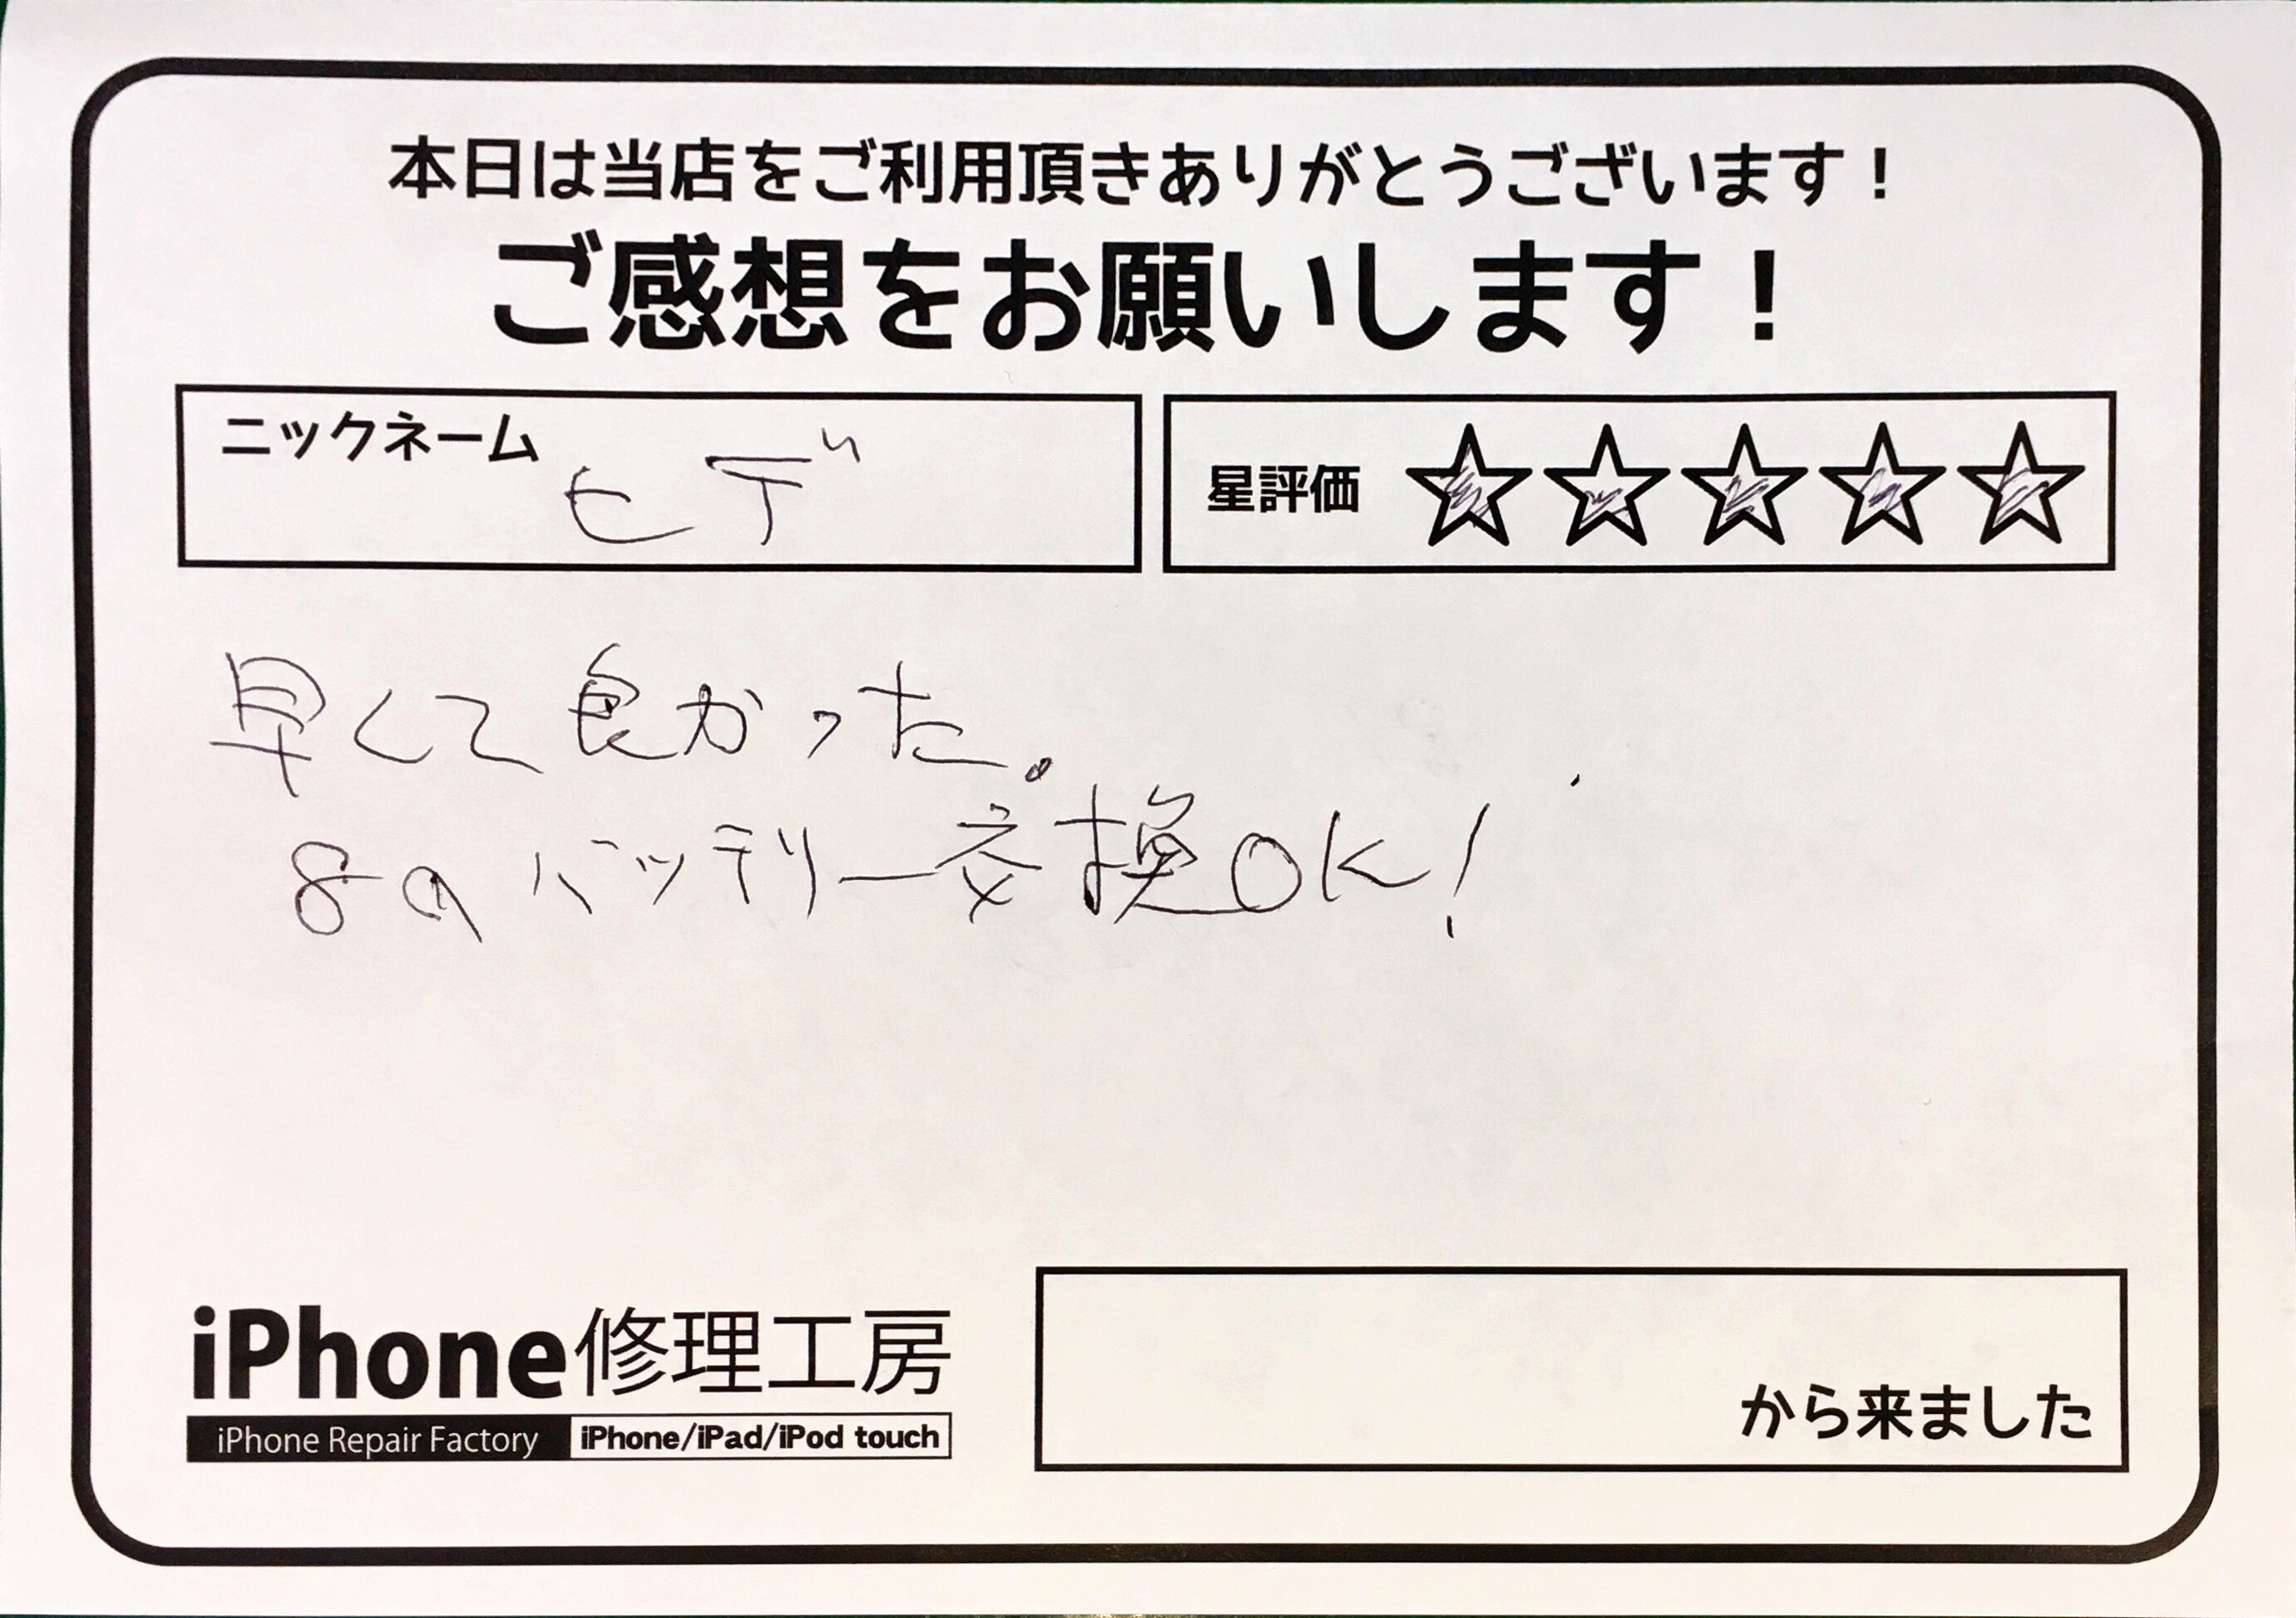 本日は当店をご利用頂きありがとうございます！
ご感想をお願いします！
ニックネーム ヒデ
星評価 ☆☆☆☆☆
早くて良かった。
8のバッテリー交換OK!
iPhone修理工房
iPhone Repair Factory iPhone/iPad/iPod touch
から来ました